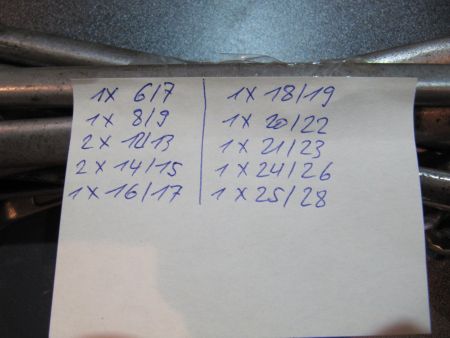 1X 6/7
1X 8/9
2X 12/13
2X 14/15
1X 16/17
1X 18/19
1X 20/22
1X 21/23
1X 24/26
1X 25/28